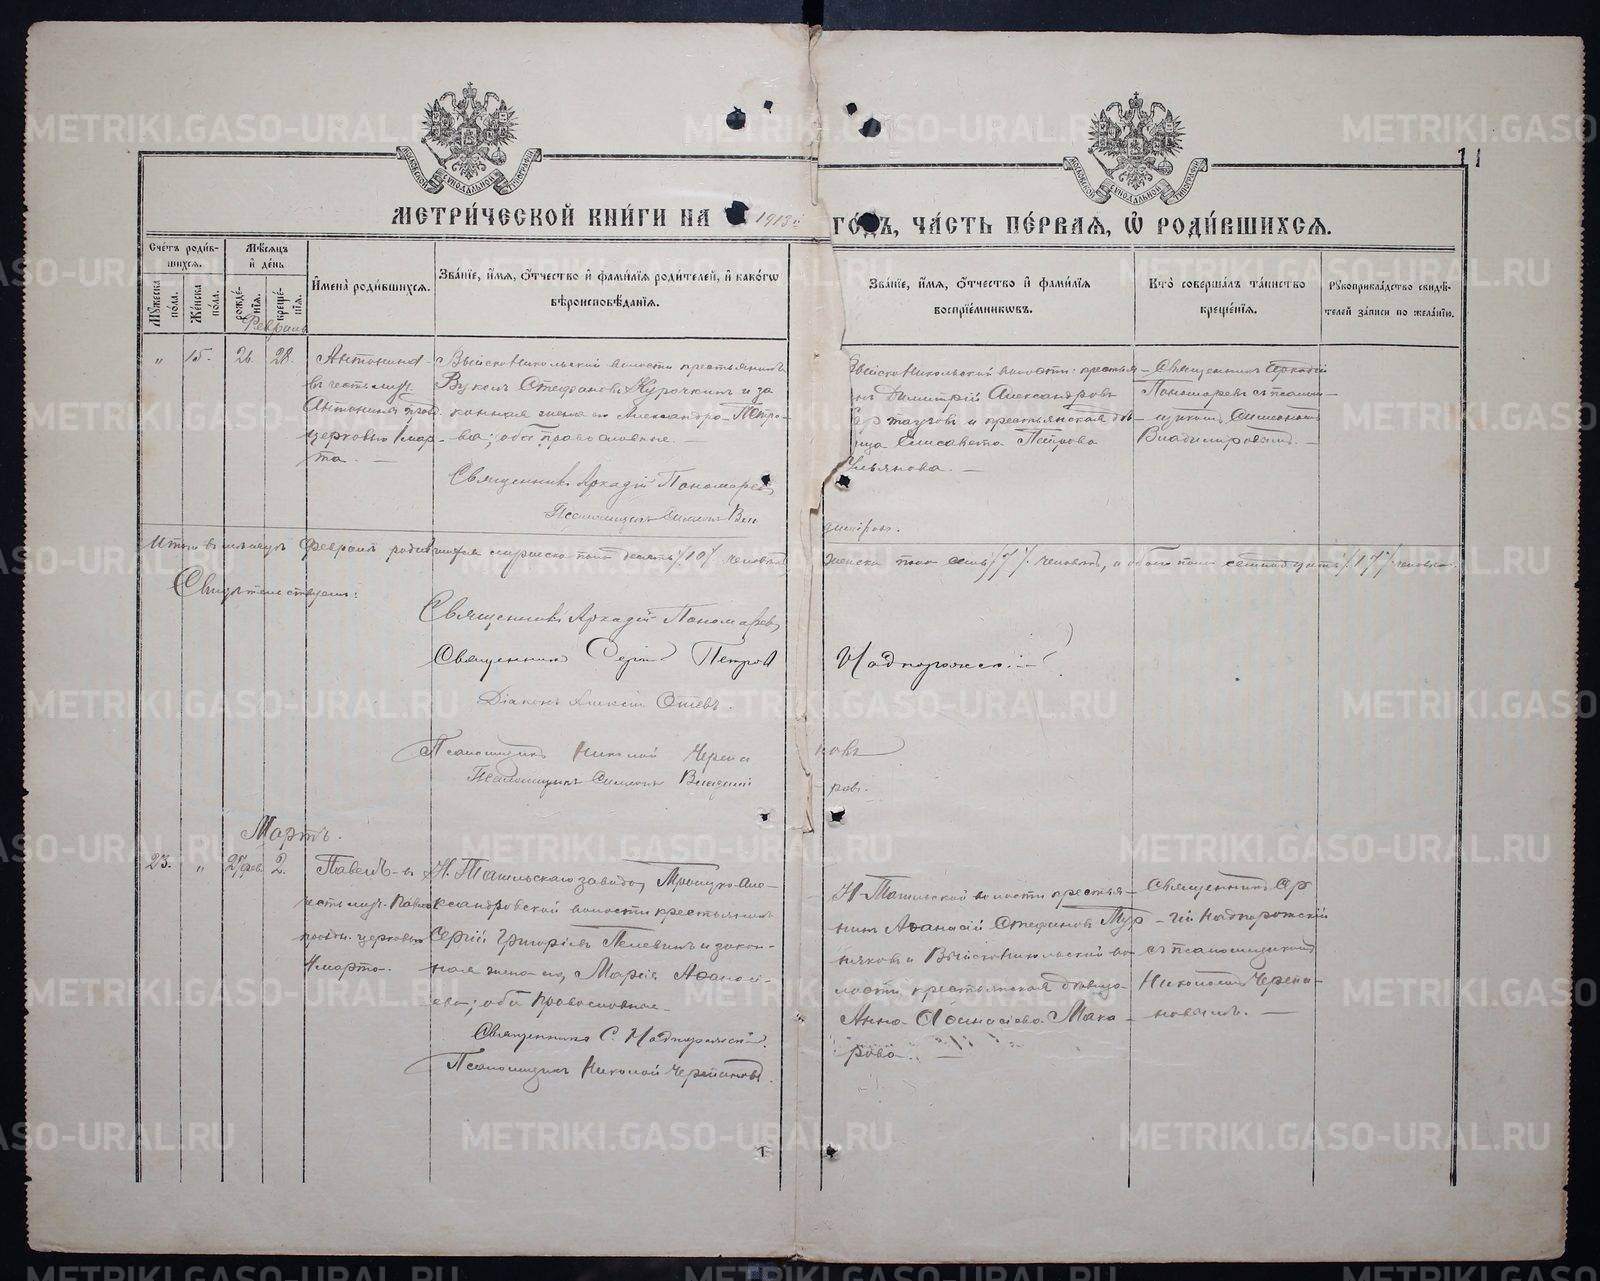 МОСКОВСКОЙ СѴНОДАЛЬНОЙ ТИПОГРАФІИ
МОСКОВСКОЙ СѴНОДАЛЬНОЙ ТИПОГРАФІИ
11
МЕТРИ́ЧЕСКОЙ КНИ́ГИ НА 1913й ГО́ДЪ, ЧА́СТЬ ПЕ́РВАЯ, Ѡ РОДИ́ВШИХСЯ.
Сче́тъ роди́вшихся.
Мѣ́сяцъ и҆ де́нь
Му́жеска по́ла.
Же́нска по́ла.
рожде́нія.
креще́нія.
И҆мена̀ роди́вшихся.
Зва́нїе, и҆́мя, ѻ҆́тчество и҆ фами́лїя роди́телей, и҆ како́гѡ вѣроисповѣ́данїя.
Зва́нїе, и҆́мя, ѻ҆́тчество и҆ фами́лїя воспрїе́мникѡвъ.
Кто̀ соверша́лъ та́инство креще́нїя.
Рꙋкоприкла́дство свидѣ́телей за́писи по жела́нїю.
Февраль
„ 15. 26. 28.
Антонина
въ честь муч.
Антонины празд.
церковью 1 мар-
та. —
Выйско Никольской волости крестьянинъ
Вуколъ Стефановъ Курочкинъ и за
конная жена его Александра Петро-
ва; оба православные. —
Священникъ Аркадій Пономаревъ
Псаломщикъ Симеонъ Вла
димiровъ.
Выйско Никольской волости: крестья
нъ Димитрій Александровъ
и крестьянская дѣ
вица Елисавета Петрова
Ульянова. —
Священникъ Аркадій
Пономаревъ съ псалом-
щикомъ Симеономъ
Владимировымъ. —
Итого въ мѣсяцѣ Февралѣ родившихся мужеска пола десять /10/ человѣкъ
женска пола семь /7/ человѣкъ, а обоего пола семнадцать /17/ человѣкъ.
Свидѣтельствуемъ:
Священникъ Аркадій Пономаревъ
Священникъ Сергій Петровъ Надпорожскій
Діаконъ Алексій
Псаломщикъ Николай Черепа
новъ
Псаломщикъ Симеонъ Владимi
ровъ.
Мартъ.
23. „ 27 фев. 2.
Павелъ — въ
честь муч. Павла
празд. церковью
4 марта.
Н. Тагильскаго завода, Троицко-Але-
ксандровской волости крестьянинъ
Сергій Григоріевъ Пелевинъ и закон-
ная жена его, Марія Аѳанасі-
ева; оба православные.
Священникъ С. Надпорожскій.
Псаломщикъ Николай Черепановъ.
Н-Тагильской волости крестья-
нинъ Аѳанасій Стефановъ Мур-
и Выйско Никольской во-
лости крестьянская дѣвица
Анна Аѳанасіева Мака-
рова. —
Священникъ Сер-
гій Надпорожскій
съ псаломщикомъ
Николаемъ Черепа-
новымъ. —
METRIKI.GASO-URAL.RU